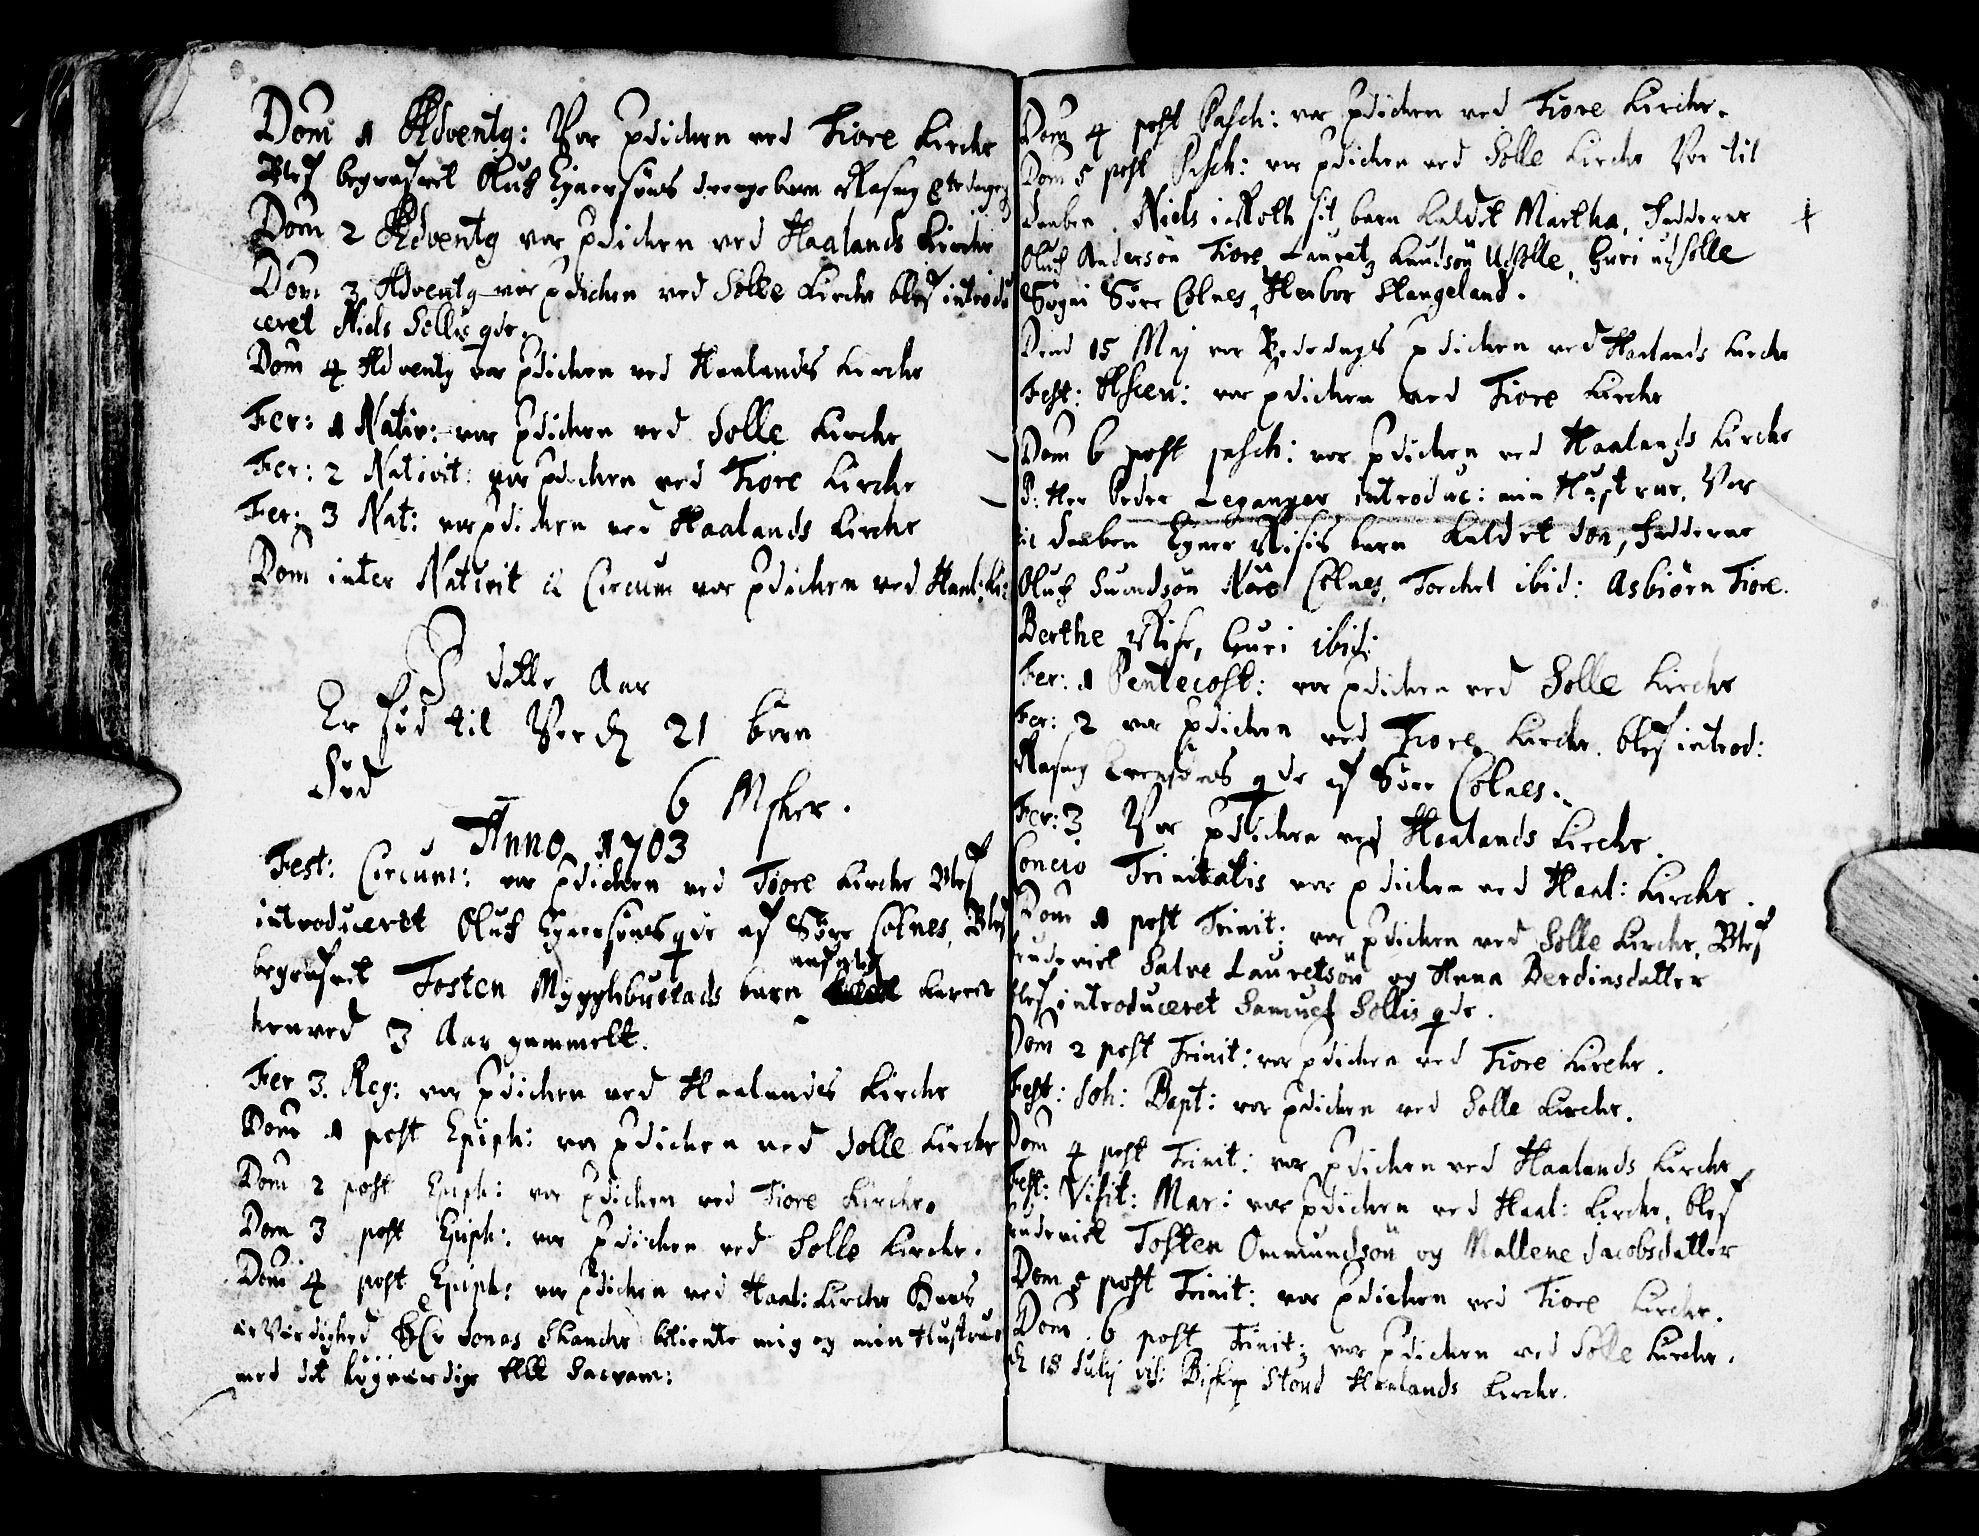 Dom 1 Adventg: Var Pdicken ved Tiore Kircke
Blef begrafvet Oluf Ejnersöns drengebarn Rasmg 8te dageg
Dom 2 Adventg var Pdicken ved Haalands Kircke
Dom 3 Adventg var pdicken ved Solle Kircke blef introdu
ceret Niels Sollis qde.
Dom 4 Adventg var Pdicken ved Haalands Kircke
Fer: 1 Nativ: var Pdicken ved Solle Kircke
Fer: 2 Nativit: var Pdicken ved Tiore Kircke
Fer: 3 Nat: var pdicken ved Haalands Kircke
Dom inter Nativit & Circum var Pdicken ved Haal: Ki:
I dette Aar
Er fød til Verden 21 børn
Død
6 Msker.
Anno 1703
Fest: Circum: var Pdicken ved Tiore Kircke Blef
introduceret Oluf Ejnersöns qde af Søre Colnes, Blef
begrafvet Tosten Mygglebustads barn
henved 3 Aar gammelt.
Fer 3. Reg: var Pdicken ved Haalandes Kircke
Dom 1 post Epiph: var pdicken ved Solle Kircke
Dom 2 post Epiph: var Pdicken ved Tiore Kircke.
Dom 3 post Epiph: var Pdicken ved Solle Kircke.
Dom 4 post Epiph: var Pdicken ved Haal: Kircke Hans
ærVærdighed HEr Jonas Skancke betiente mig og min Hustrue
med det høyværdige Alt: Sacram:
Dom 4 post Pasch: var Pdicken ved Tiore Kircke.
Dom 5 post Pasch: var pdicken ved Solle Kircke Var til
daaben Niels i Roth sit barn kaldet Martha, Fadderne
Oluf Andersön Tiore, Lauretz Knudsön Udsolle, Guri udsolle
Sygni Søre Colnes, Herbor Stangeland.
Dend 15 Maj var Bededags pdicken ved Haalands Kircke
Fest: Ascen: var pdicken ved Tiore Kircke
Dom 6 post pasch: var Pdicken ved Haalands Kircke
D: Her Peder Leganger introduc: min Hustrue. Var
til daaben Ejner Risis barn kaldet Jon, Fadderne
Oluf Suendsön Nöre Colnes, Torchel ibid: Asbiörn Tiore.
Berthe Rise, Guri ibid:
Fer: 1 Pentecost: var pdicken ved Solle Kircke
Fer: 2 var Pdicken ved Tiore Kircke. blef introd:
Rasmg qde af Søre Colnes.
Fer: 3 Var Pdicken ved Haalands Kircke.
Concio Trinitatis var pdicken ved Haal: Kircke.
Dom 1 post Trinit: var Pdicken ved Solle Kircke, Blef
trudeviet Salve Lauretsön og Anna Berdinsdatter
blef introduceret Samuel Sollis qde.
Dom 2 post Trinit: var pdicken ved Tiore Kircke.
Fest: Joh: Bapt: var pdicken ved Solle Kircke.
Dom 4 post Trinit: var Pdicken ved Haalands Kircke
Fest: Visit: Mar: var Pdicken ved Haal: Kircke, blef
trudeviet Tosten Ommundsön og Mallene Jacobsdatter
Dom 5 post Trinit: var Pdicken ved Tiore Kircke.
Dom 6 post Trinit: var Pdicken ved Solle Kircke.
d 18 Julij vis: Biskop Stoud Haalands Kircke.